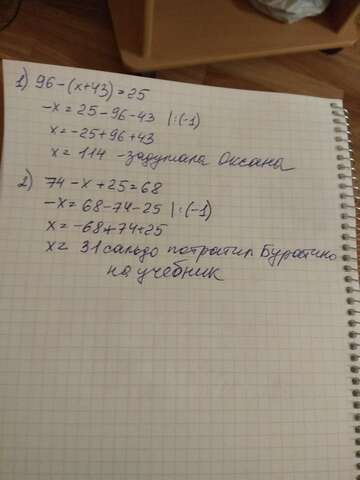 1) 96-(x+43)=25
-x=25-96-43 |:(-1)
x=-25+96+43
x=114 - задумала Оксана
2) 74-x+25=68
-x=68-74-25 |:(-1)
x=-68+74+25
x=31 сальдо потратил Буратино
на учебник